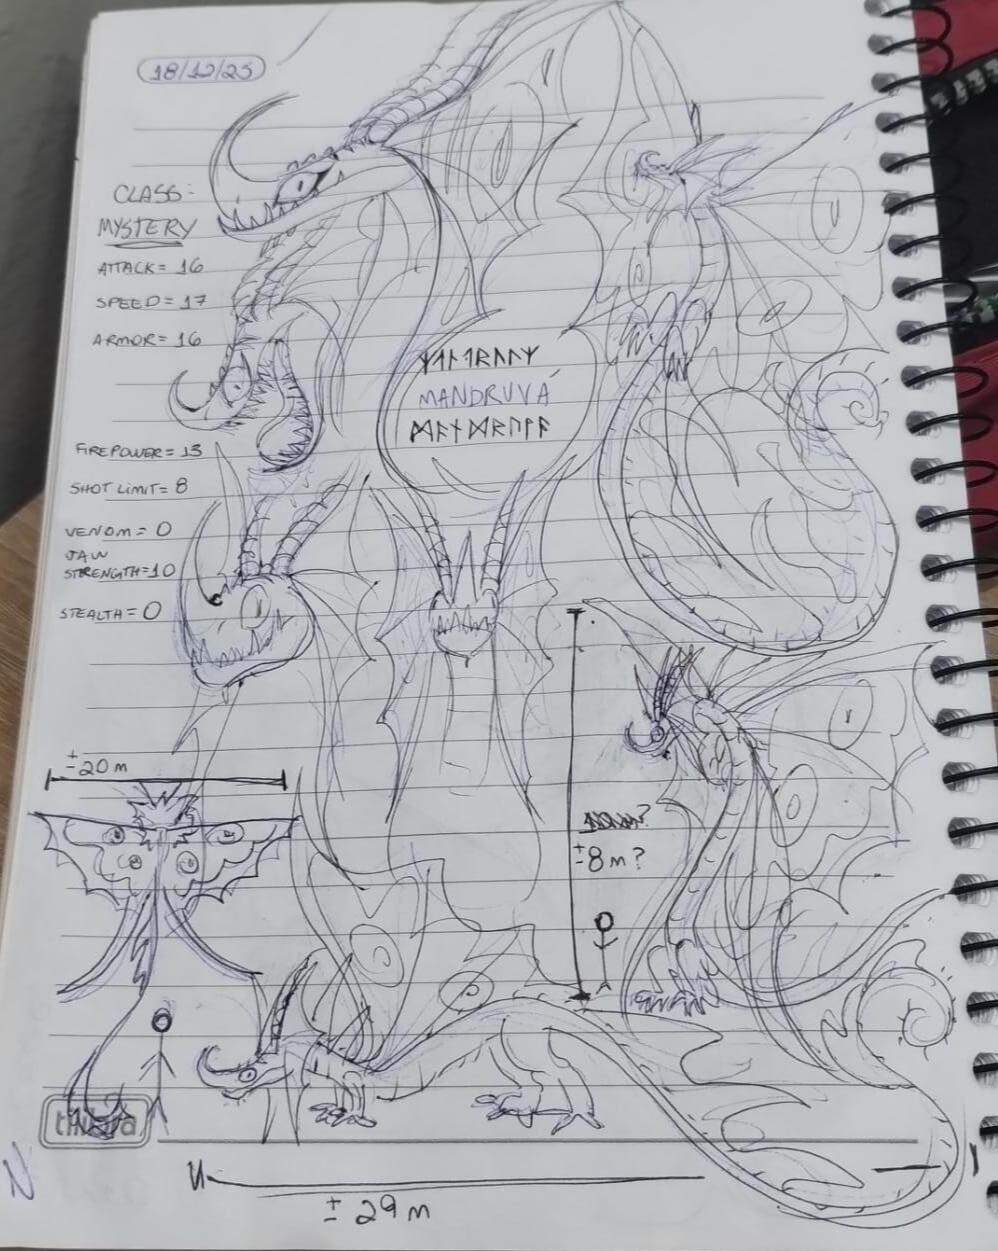 18/12/25
CLASS:
MYSTERY
ATTACK = 16
SPEED = 17
ARMOR = 16
MANDRUVÁ
ᛗᚨᚾᛞᚱᚢᚹᚨ
FIREPOWER = 13
SHOT LIMIT = 8
VENOM = 0
JAW
STRENGTH = 10
STEALTH = 0
± 20 m
± 8 m?
± 29 m